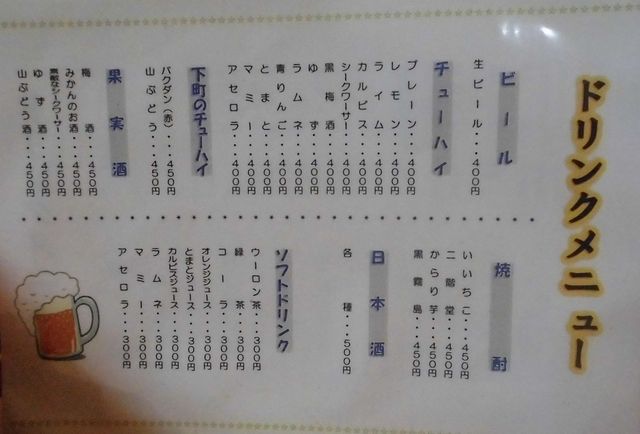 ドリンクメニュー
ビール
生ビール・・・400円
チューハイ
プレーン・・・400円
レモン・・・400円
ライム・・・400円
カルピス・・・400円
シークワーサー・・・400円
黒梅酒・・・400円
ゆず・・・400円
ラムネ・・・400円
青りんご・・・400円
とまと・・・400円
マミー・・・400円
アセロラ・・・400円
下町のチューハイ
バクダン(赤)・・・450円
山ぶどう・・・450円
果実酒
梅酒・・・450円
みかんのお酒・・・450円
素敵なシークワーサー・・・450円
ゆず酒・・・450円
山ぶどう酒・・・450円
焼酎
いいちこ・・・450円
二階堂・・・450円
からり芋・・・450円
黒霧島・・・450円
日本酒
各種・・・500円
ソフトドリンク
ウーロン茶・・・300円
緑茶・・・300円
コーラ・・・300円
オレンジジュース・・・300円
とまとジュース・・・300円
カルピスジュース・・・300円
ラムネ・・・300円
マミー・・・300円
アセロラ・・・300円